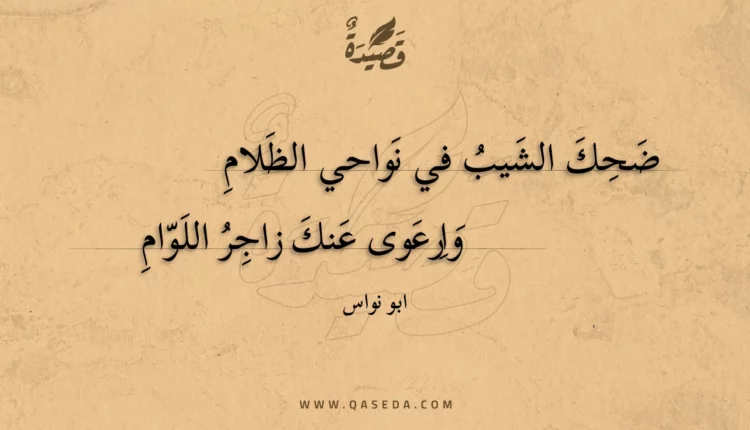 قَصِيْدَةٌ
ضَحِكَ الشَيبُ في نَواحي الظَلامِ
وَاِرعَوى عَنكَ زاجِرُ اللَوّامِ
ابو نواس
WWW.QASEDA.COM